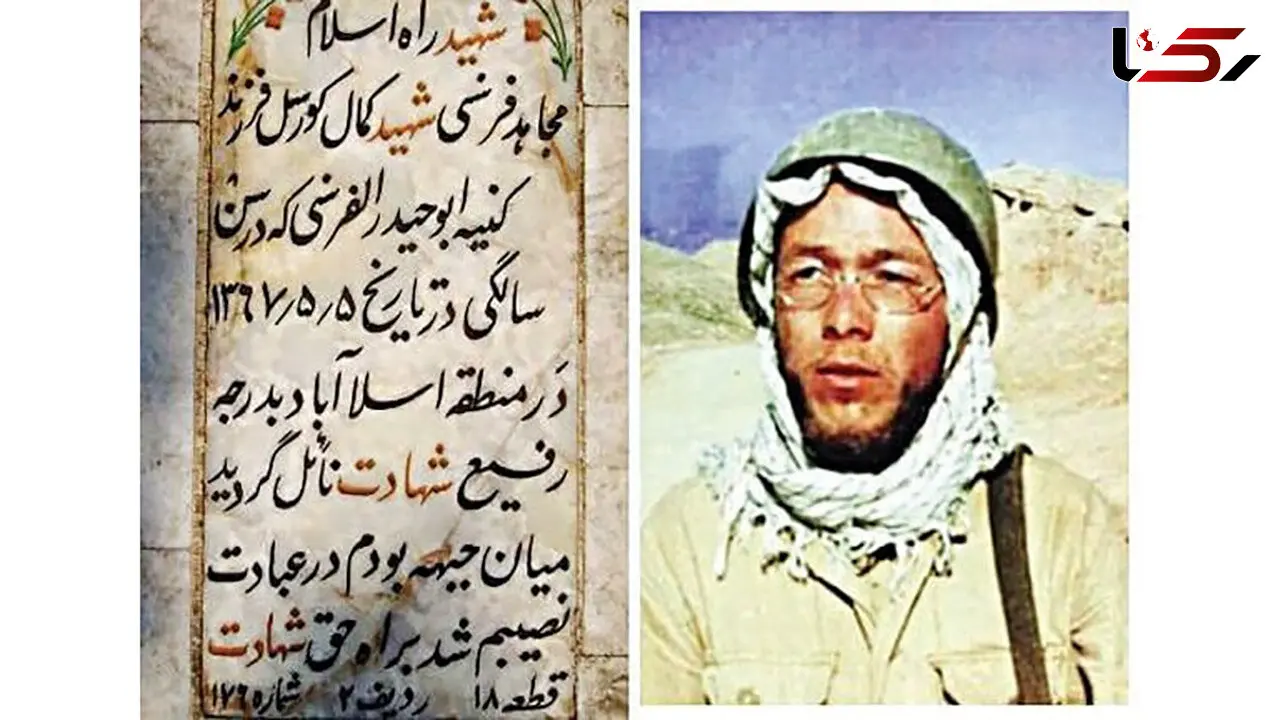 شهید راه اسلام
مجاهد فرنسی شهید کمال کورسل فرزند
کنیه ابوحیدر الفرنسی که در سن
سالگی در تاریخ ۱۳۶۷/۵/۵
در منطقه اسلام آباد بدرجه
رفیع شهادت نائل گردید
میان جبهه بودم در عبادت
نصیبم شد براه حق شهادت
قطعه ۱۸ ردیف ۲ شماره ۱۷۶
رکنا